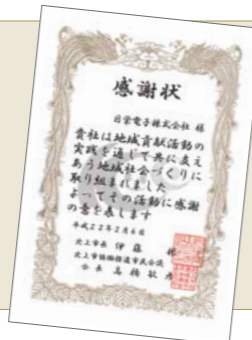 感謝状
日栄電子株式会社 様
貴社は地域貢献活動の
実践を通じて共に支え
あう地域社会づくりに
取り組まれました
よってその活動に感謝
の意を表します
平成22年2月6日
北上市長 伊藤 彬
北上市協働推進市民会議
会長 高橋敏彦